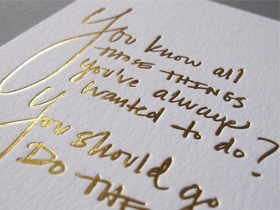 You know all
THOSE THINGS
you've always
wanted to do?
You should go
DO THE